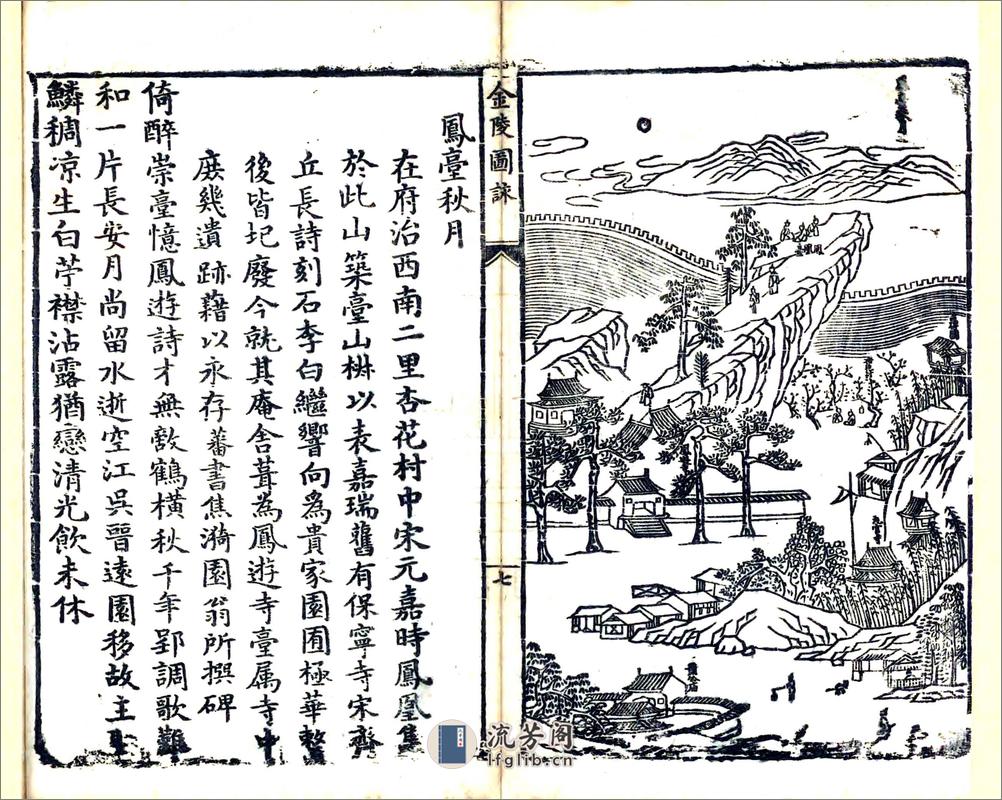 金陵圖詠
七
鳳凰臺
鳳臺秋月
在府治西南二里杏花村中宋元嘉時鳳凰集
於此山築臺山椒以表嘉瑞舊有保寧寺宋齊
丘長詩刻石李白繼響向爲貴家園囿極華整
後皆圮廢今就其庵舍葺爲鳳遊寺臺属寺中
庶幾遺跡藉以永存蕃書焦漪園翁所撰碑
倚醉崇臺憶鳳遊詩才無敵鶴橫秋千年郢調歌難
和一片長安月尚留水逝空江吳晉遠園移故主
鱗稠凉生白苧襟沾露猶戀清光飲未休
流芳阁
lfglib.cn